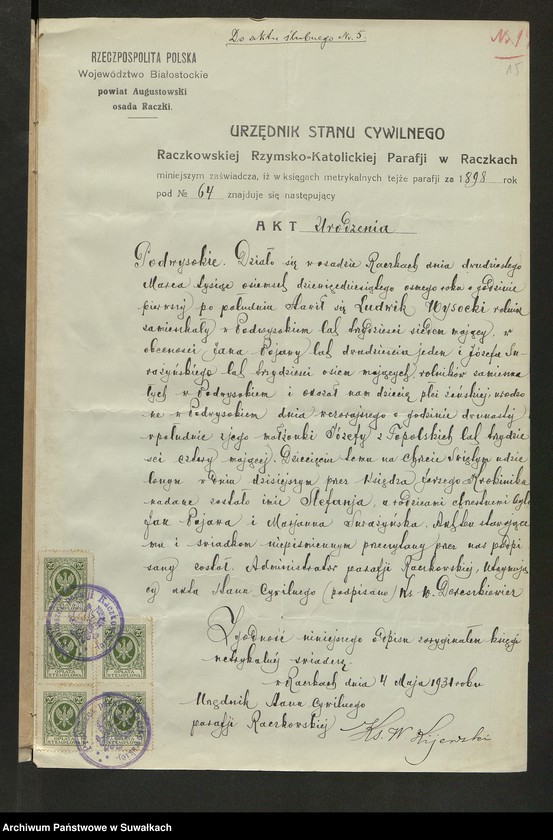 Do aktu ślubnego Nr. 5.
Nr. 1
15
RZECZPOSPOLITA POLSKA
Województwo Białostockie
powiat Augustowski
osada Raczki.
URZĘDNIK STANU CYWILNEGO
Raczkowskiej Rzymsko-Katolickiej Parafji w Raczkach
miniejszym zaświadcza, iż w księgach metrykalnych tejże parafji za 1898 rok
pod № 64 znajduje się następujący
AKT Urodzenia
Podwysokie. Działo się w osadzie Raczkach dnia dwudziestego
Marca tysiąc ośmset dziewięćdziesiątego ósmego roku o godzinie
pierwszej po południu stawił się Ludwik Wysocki rolnik
zamieszkały w Podwysokiem lat trzydzieści siedem mający, w
obecności Jana Pojawy lat dwadzieścia jeden i Józefa Su-
rażyńskiego lat trzydzieści osiem mających, rolników zamieszka
łych w Podwysokiem i okazał nam dziecię płci żeńskiej urodzo
ne w Podwysokiem dnia wczorajszego o godzinie dwunastej
w południe z jego małżonki Józefy z Topolskich lat trzydzie
ści cztery mającej. Dziecięciu temu na Chrzcie Świętym udzie
lonym w dniu dzisiejszym przez Księdza
nadane zostało imię Stefanja, a rodzicami chrzestnemi byli
Jan Pojawa i Marjanna Surażyńska. Akt ten stawające
mu i świadkom niepiśmiennym przeczytany przez nas podpi
sany został. Administrator parafji Raczkowskiej, Utrzymują
cy akta Stanu Cywilnego (podpisano) Ks.
Zgodność niniejszego odpisu z oryginałem księgi
metrykalnej świadczę.
w Raczkach dnia 4 Maja 1931 roku
Urzędnik Stanu Cywilnego
parafji Raczkowskiej Ks. W. Kijewski
OPŁATA
STEMPLOWA
OPŁATA
STEMPLOWA
OPŁATA
STEMPLOWA
OPŁATA
STEMPLOWA
Archiwum Państwowe w Suwałkach